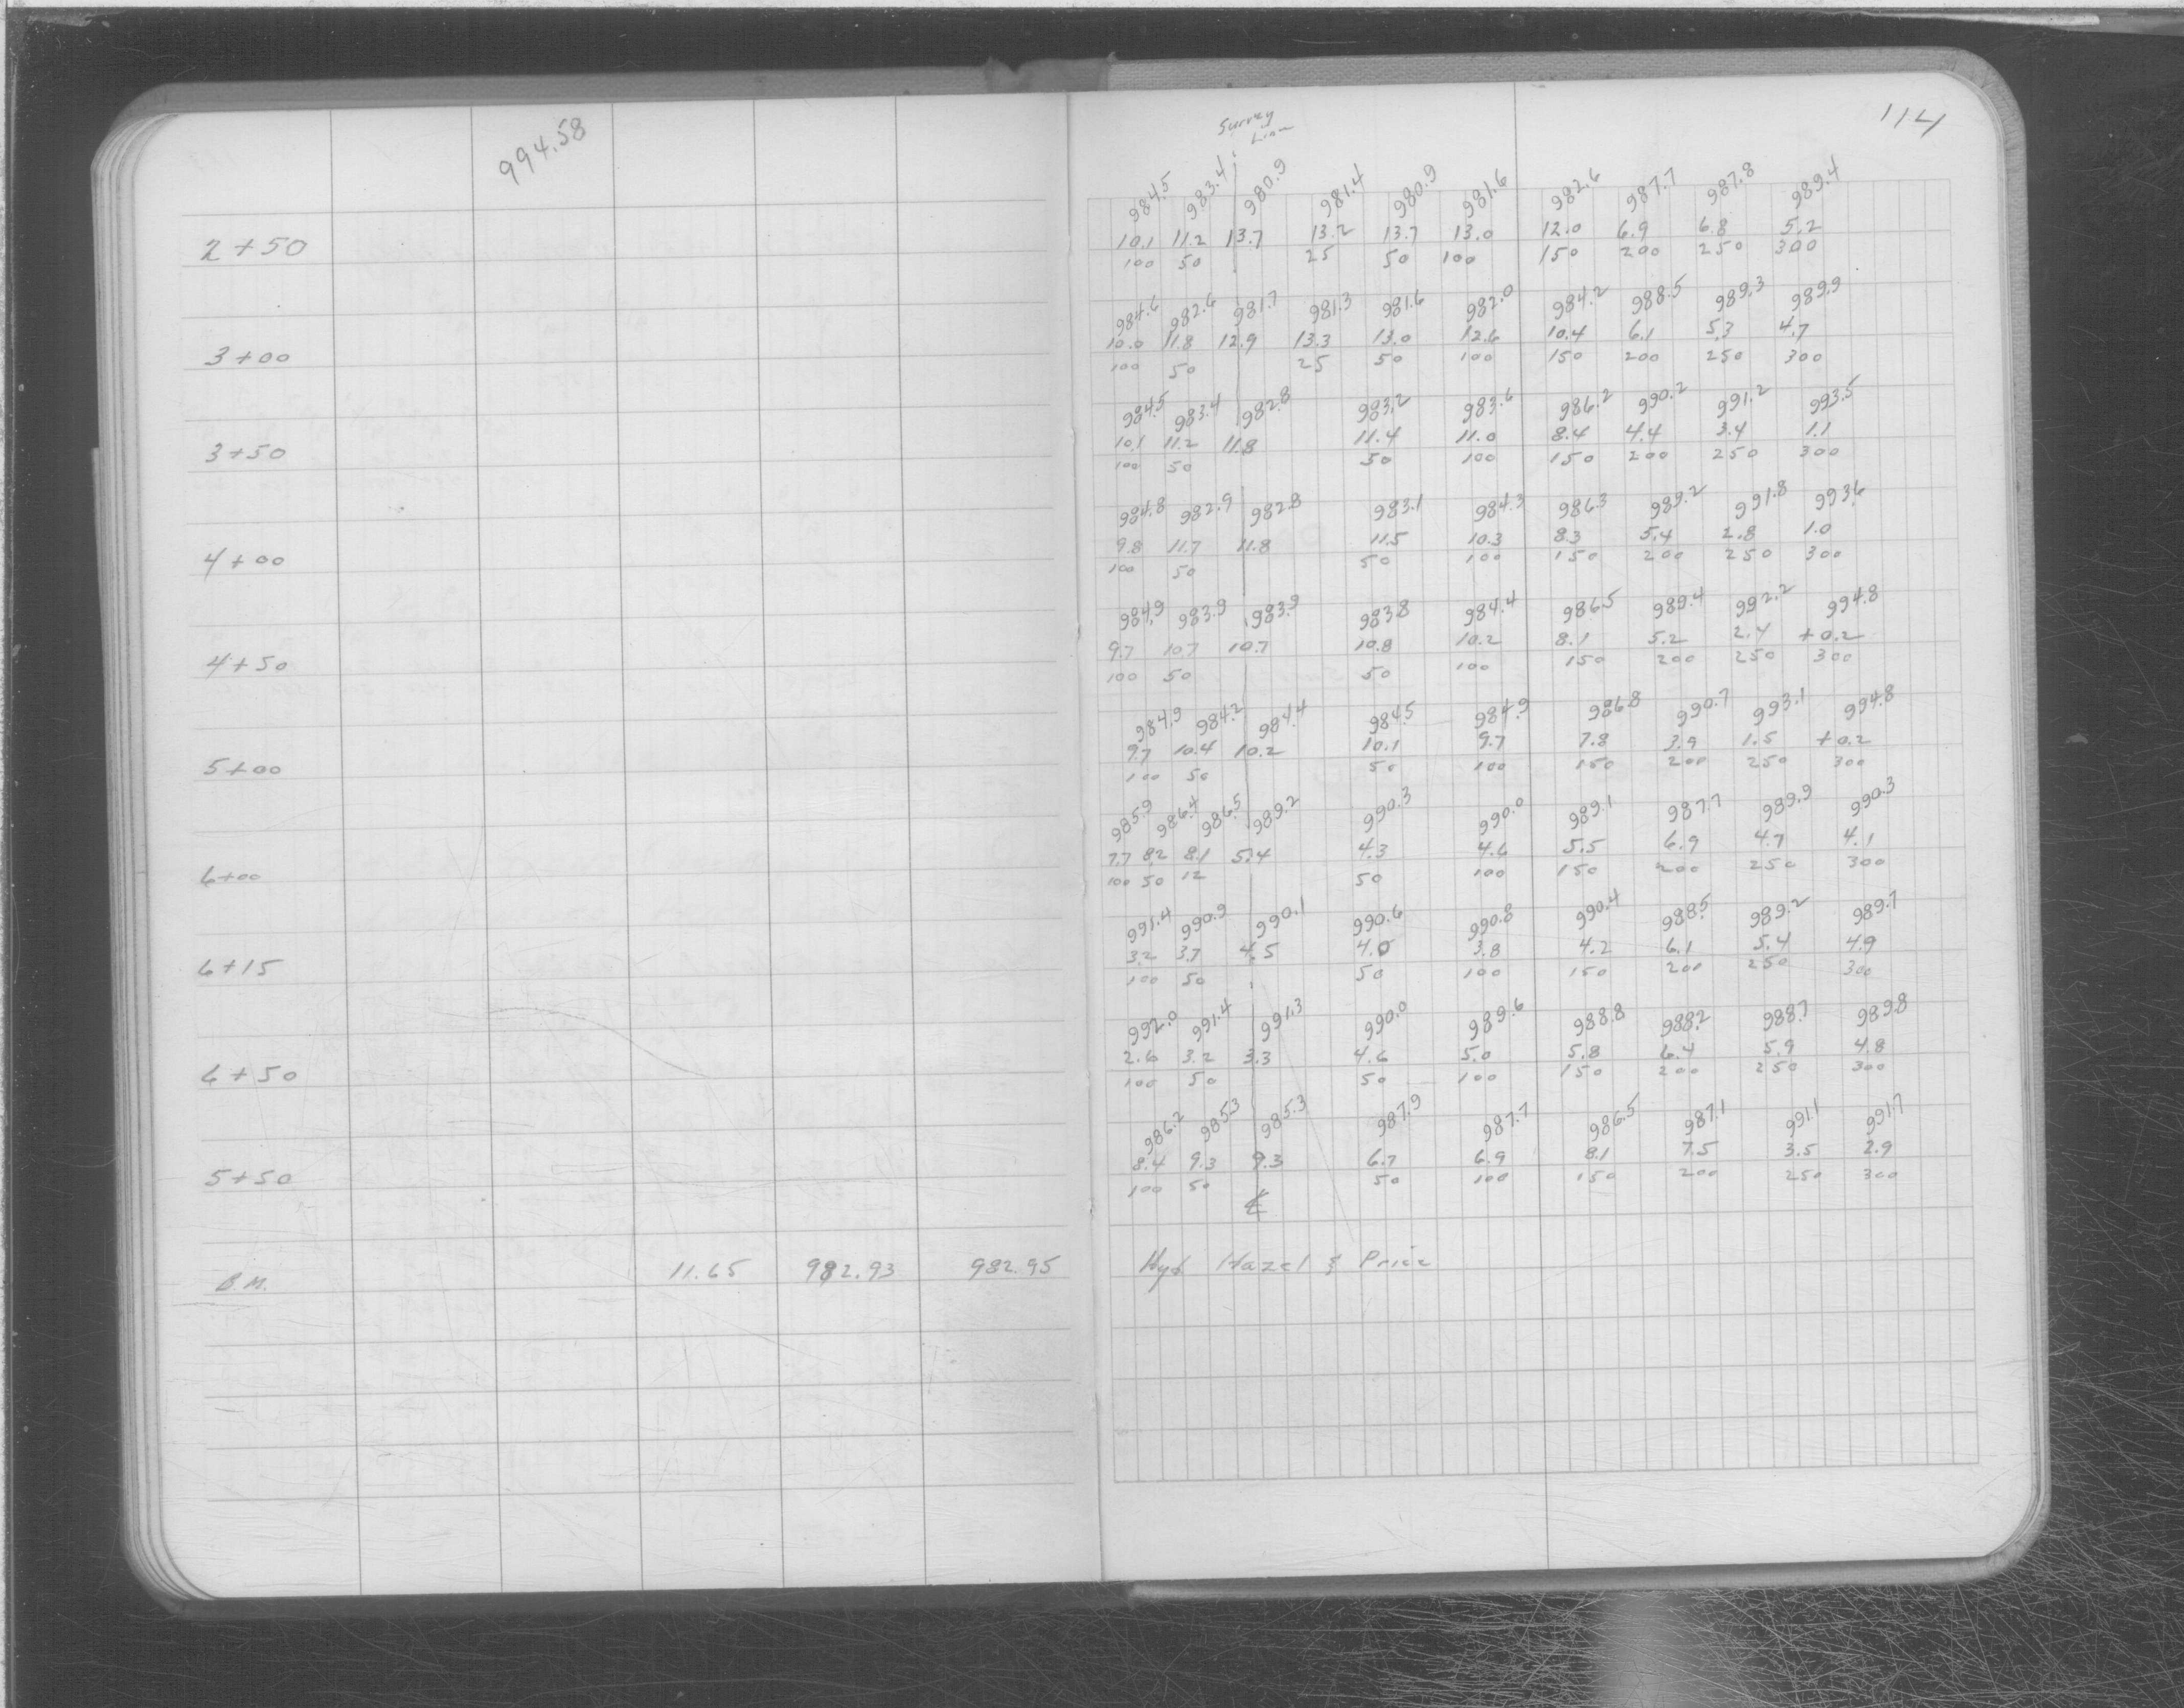 994.58
2+50
3+00
3+50
4+00
4+50
5+00
6+00
6+15
6+50
5+50
B.M. 11.65 982.93 982.95
114
Survey
Line
984.5 983.4 980.9 981.4 980.9 981.6 982.6 987.7 987.8 989.4
10.1 11.2 13.7 13.2 13.7 13.0 12.0 6.9 6.8 5.2
100 50 25 50 100 150 200 250 300
984.6 982.6 981.7 981.3 981.6 982.0 984.2 988.5 989.3 989.9
10.0 11.8 12.9 13.3 13.0 12.6 10.4 6.1 5.3 4.7
100 50 25 50 100 150 200 250 300
984.5 983.4 982.8 983.2 983.6 986.2 990.2 991.2 993.5
10.1 11.2 11.8 11.4 11.0 8.4 4.4 3.4 1.1
100 50 50 100 150 200 250 300
984.8 982.9 982.8 983.1 984.3 986.3 989.2 991.8 993.6
9.8 11.7 11.8 11.5 10.3 8.3 5.4 2.8 1.0
100 50 50 100 150 200 250 300
984.9 983.9 983.9 983.8 984.4 986.5 989.4 992.2 994.8
9.7 10.7 10.7 10.8 10.2 8.1 5.2 2.4 +0.2
100 50 50 100 150 200 250 300
984.9 984.2 984.4 984.5 984.9 986.8 990.7 993.1 994.8
9.7 10.4 10.2 10.1 9.7 7.8 3.9 1.5 +0.2
100 50 50 100 150 200 250 300
985.9 986.4 986.5 989.2 990.3 990.0 989.1 987.7 989.9 990.3
7.7 8.2 8.1 5.4 4.3 4.6 5.5 6.9 4.7 4.1
100 50 12 50 100 150 200 250 300
991.4 990.9 990.1 990.6 990.8 990.4 988.5 989.2 989.7
3.2 3.7 4.5 4.0 3.8 4.2 6.1 5.4 4.9
100 50 50 100 150 200 250 300
992.0 991.4 991.3 990.0 989.6 988.8 988.2 988.7 989.8
2.6 3.2 3.3 4.6 5.0 5.8 6.4 5.9 4.8
100 50 50 100 150 200 250 300
986.2 985.3 985.3 987.9 987.7 986.5 987.1 991.1 991.7
8.4 9.3 9.3 6.7 6.9 8.1 7.5 3.5 2.9
100 50 50 100 150 200 250 300
℄
Hyd Hazel & Price